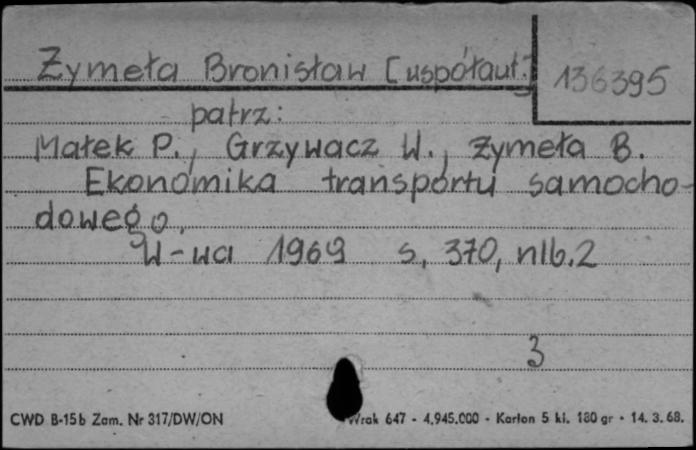 Żymeła Bronisław [współaut.]
136395
patrz:
Małek P., Grzywacz W., Żymeła B.
Ekonomika transportu samocho-
dowego.
W-wa 1969 s. 370, nlb. 2
3
CWD B-15b Zam. Nr 317/DW/ON
Wrak 647 - 4.945.000 - Karton 5 kl. 180 gr - 14. 3. 68.